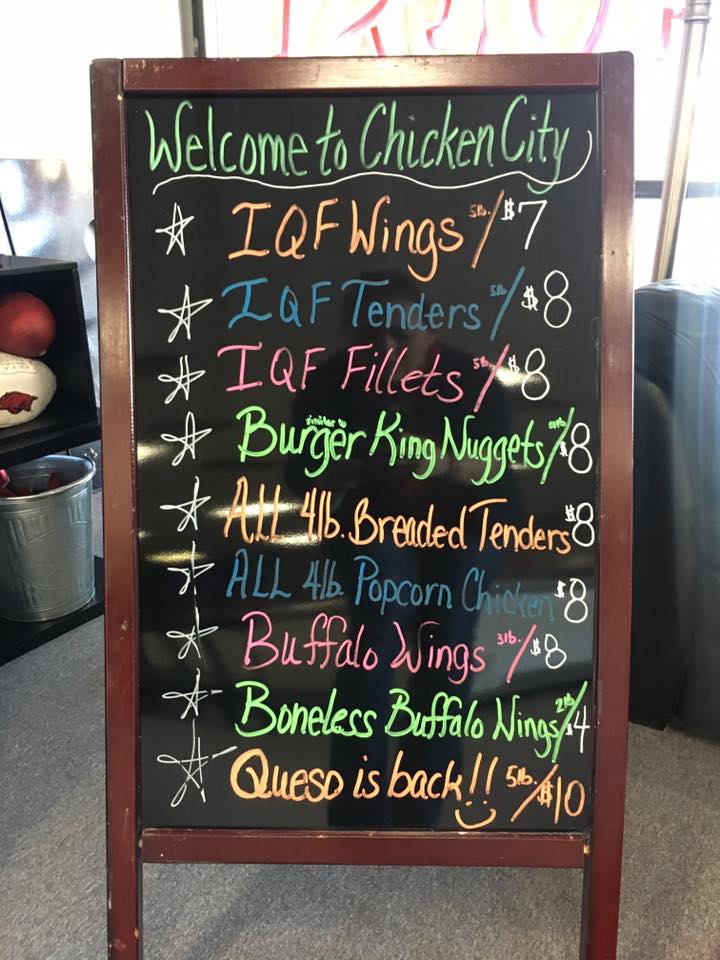 Welcome to Chicken City
IQF Wings 5lb./$7
IQF Tenders 5lb/$8
IQF Fillets 5lb/$8
similar to
Burger King Nuggets/$8
ALL 4lb. Breaded Tenders $8
ALL 4lb. Popcorn Chicken $8
Buffalo Wings 3lb./$8
Boneless Buffalo Wings 2lb/$4
Queso is back!! 5lb./$10